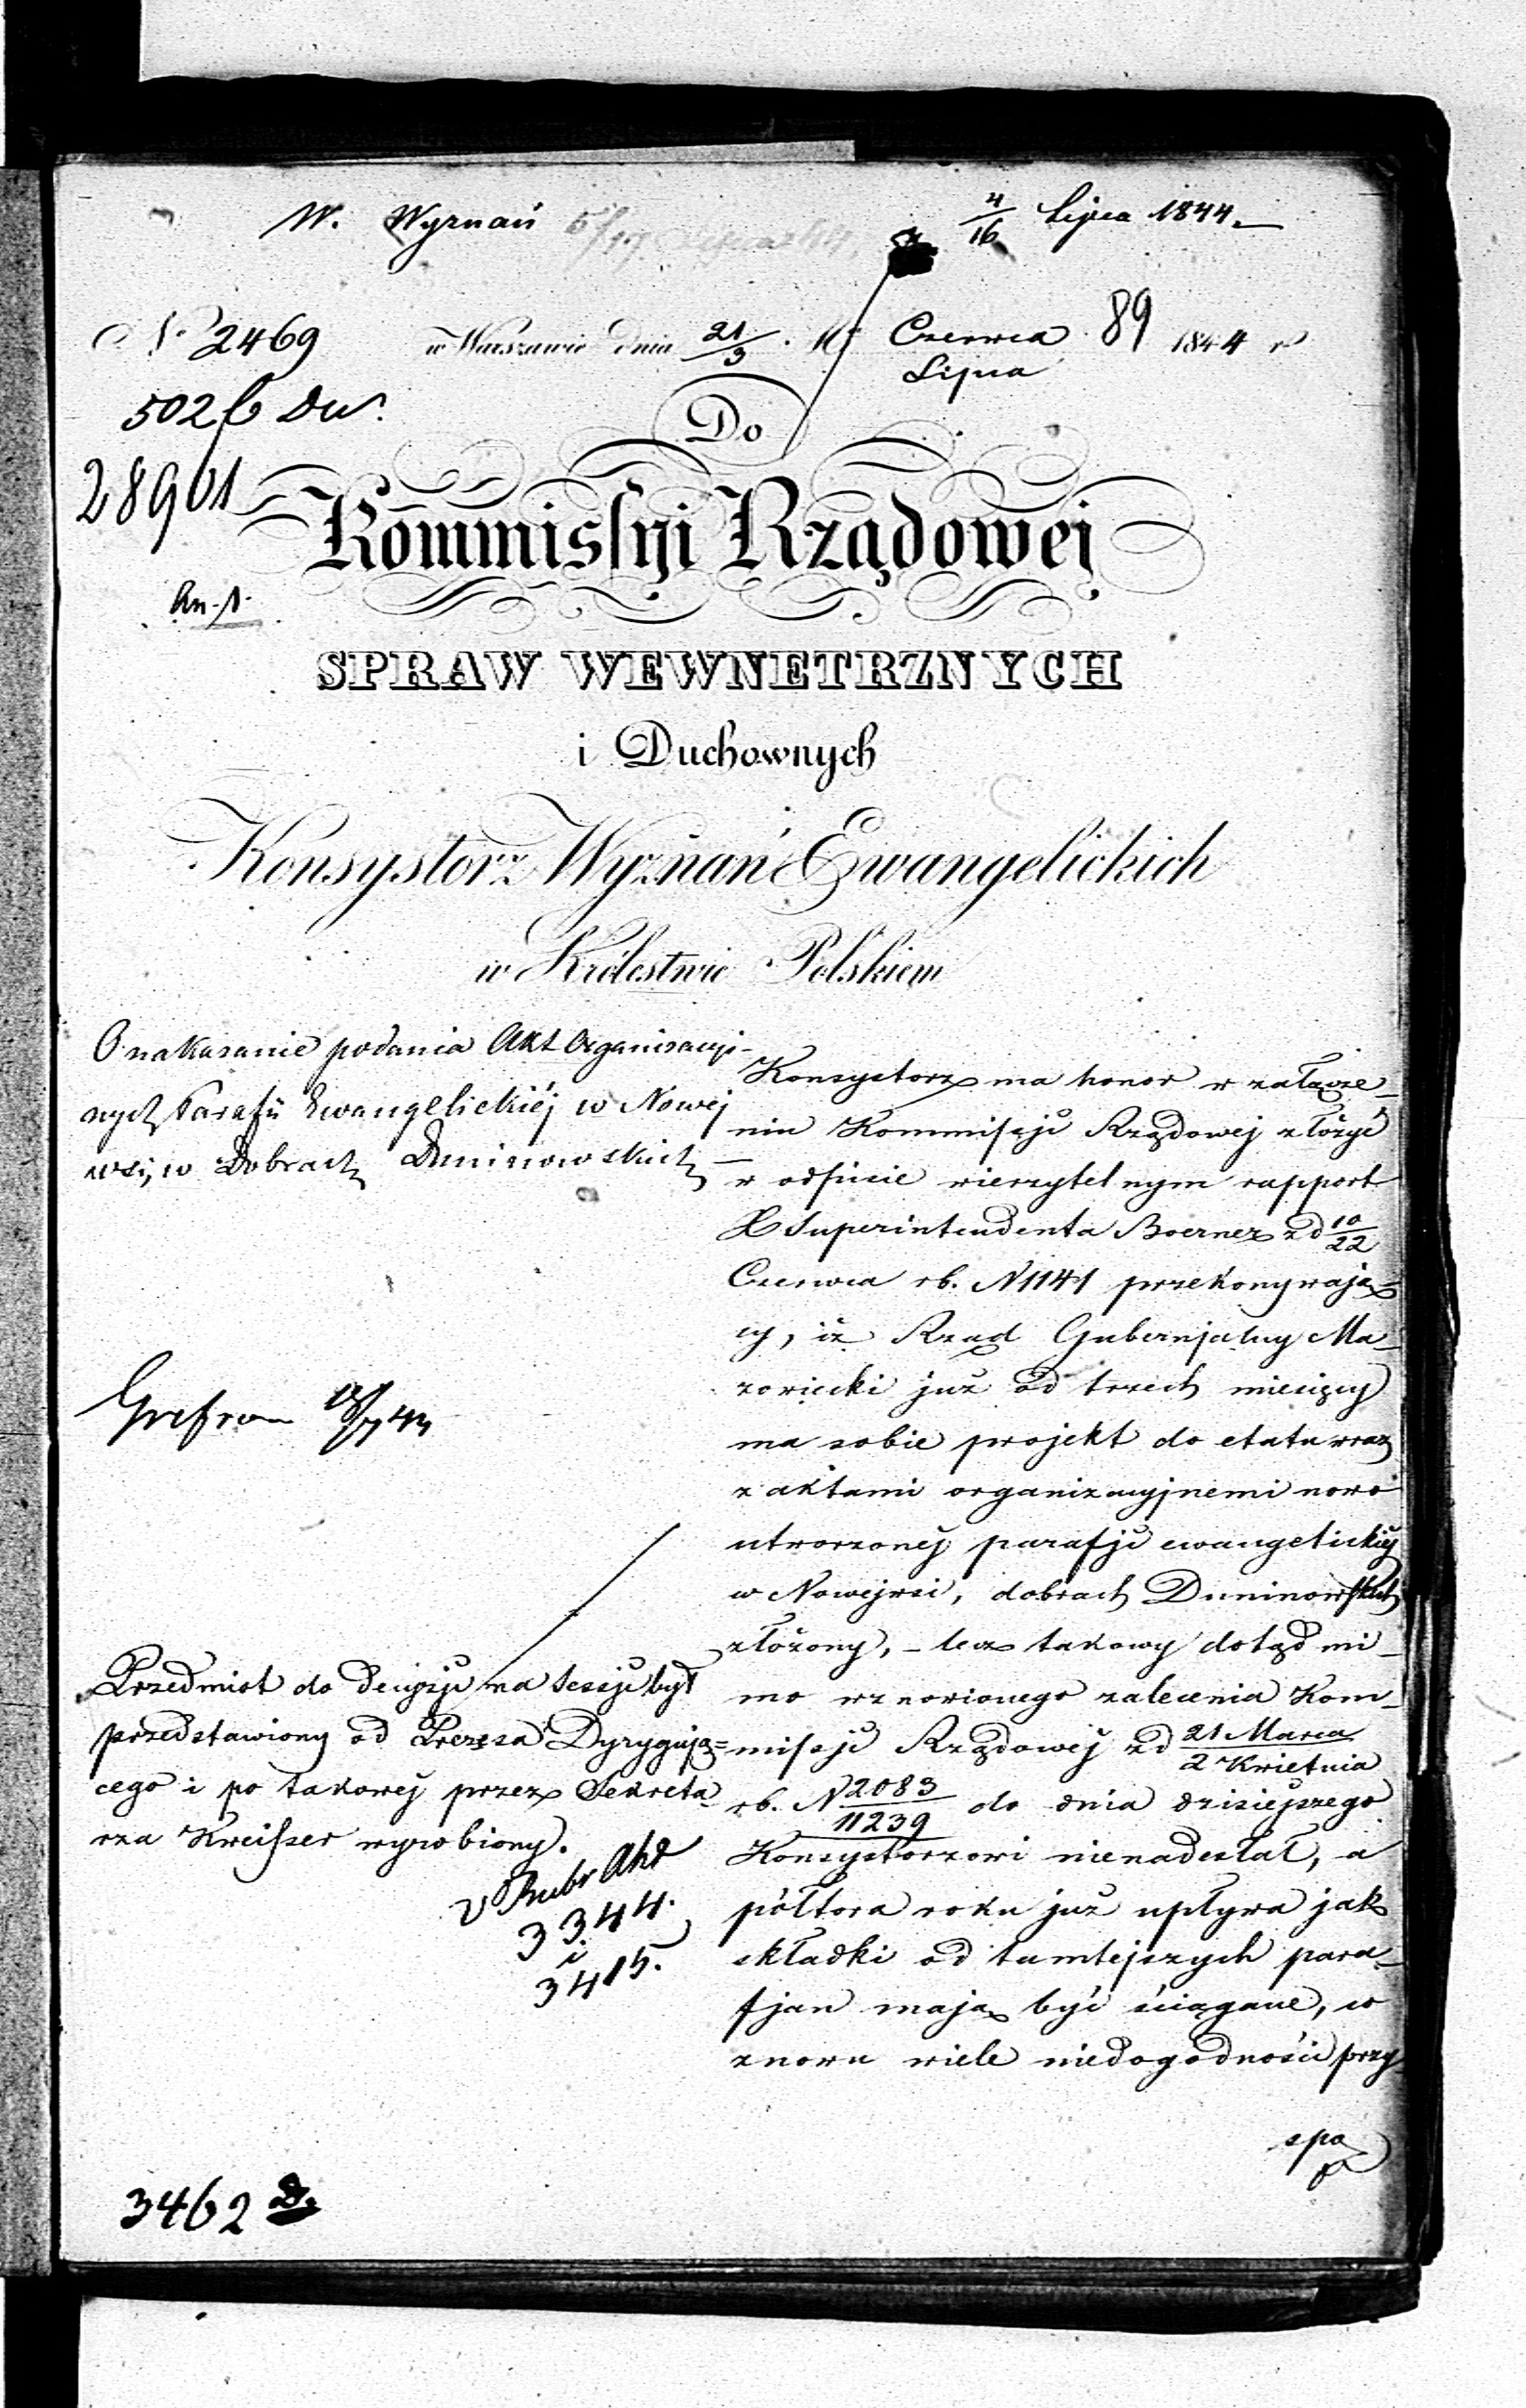 W. Wyznań 5/17 Lipca 44 4/16 Lipca 1844.
№ 2469 w Warszawie dnia 21/3 Czerwca/Lipca 1844 r 89
502 Dw.
28901
Do
Kommissyi Rządowej
An. 1.
SPRAW WEWNETRZNYCH
i Duchownych
Konsystorz Wyznań Ewangelickich
w Królestwie Polskiem
O nakazanie podania Akt Organizacyj-
nych Parafii Ewangelickiéj w Nowej
wsi, w Dobrach Duninowskich
18/7 44
Przedmiot do decyzji na sessji był
przedstawiony od Prezesa Dyrygują=
cego i po takowej przez Sekreta-
rza Kreisser wyrobiony.
v Rubr Akt
3344.
i
3415.
Konsystorz ma honor w załącze-
niu Kommissji Rządowej złożyć
w odpisie wierzytelnym rapport
X Superintendenta Boerner z d 10/22
Czerwca rb. N 1141 przekonywają=
cy, iż Rząd Gubernjalny Ma-
zowiecki już od trzech miesięcy
ma sobie projekt do etatu wraz
z aktami organizacyjnemi nowo
utworzonéj parafji ewangelickiéj
w Nowejwsi, dobrach Duninowskich
złożony, - lecz takowy dotąd mi-
mo wznowionego zalecenia Kom-
missji Rządowéj z d 21 Marca/2 Kwietnia
rb. N 2083/11239 do dnia dzisiejszego
Konsystorzowi nienadesłał, a
półtora roku już upływa jak
składki od tamtejszych para-
fjan mają być ściągane, co
znowu wiele niedogodności przy-
spa
3462